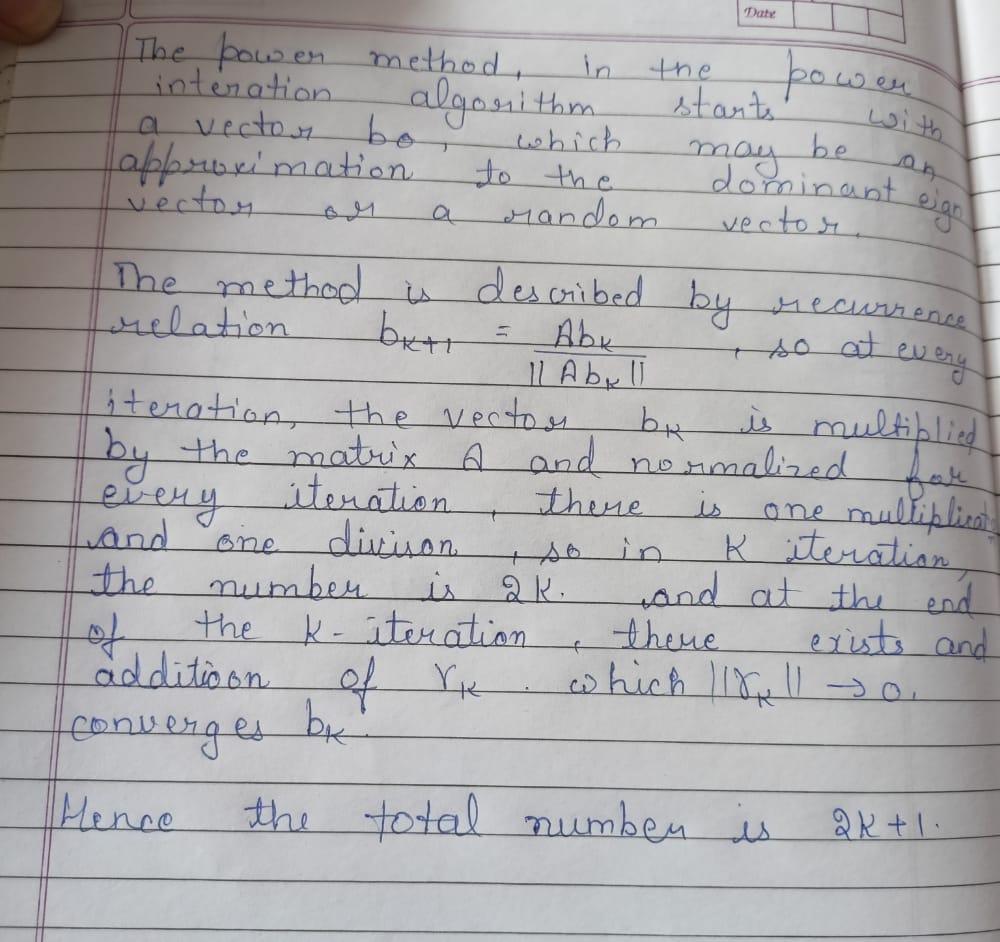 Date
The power method, in the power
interation algorithm starts with
a vector b₀, which may be an
approximation to the dominant eign
vector or a random vector.
The method is described by recurrence
relation bₖ₊₁ = Abₖ / ||Abₖ|| , so at every
iteration, the vector bₖ is multiplied
by the matrix A and normalized for
every iteration, there is one multiplicat
and one divison, so in K iteration,
the number is 2K. and at the end
of the K-iteration, there exists and
additioon of rₖ. which ||rₖ|| → 0.
converges bₖ.
Hence the total number is 2K+1.